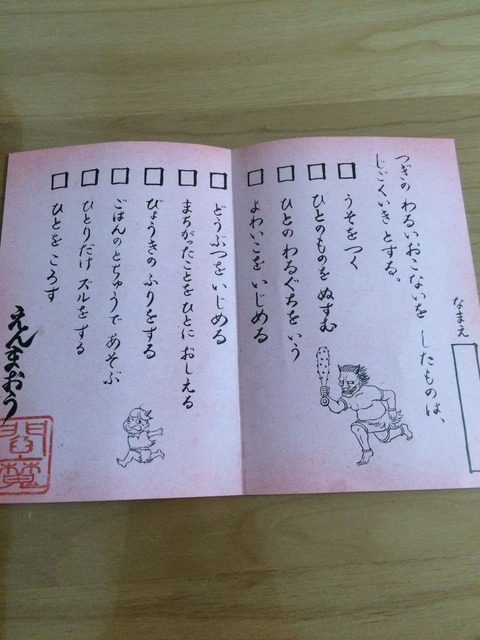 なまえ
つぎの わるいおこないを したものは、
じごくいき とする。
うそを つく
ひとのものを ぬすむ
ひとの わるぐちを いう
よわいこを いじめる
どうぶつを いじめる
まちがったことを ひとに おしえる
びょうきの ふりを する
ごはんの とちゅうで あそぶ
ひとりだけ ズルを する
ひとを ころす
えんまおう
閻魔